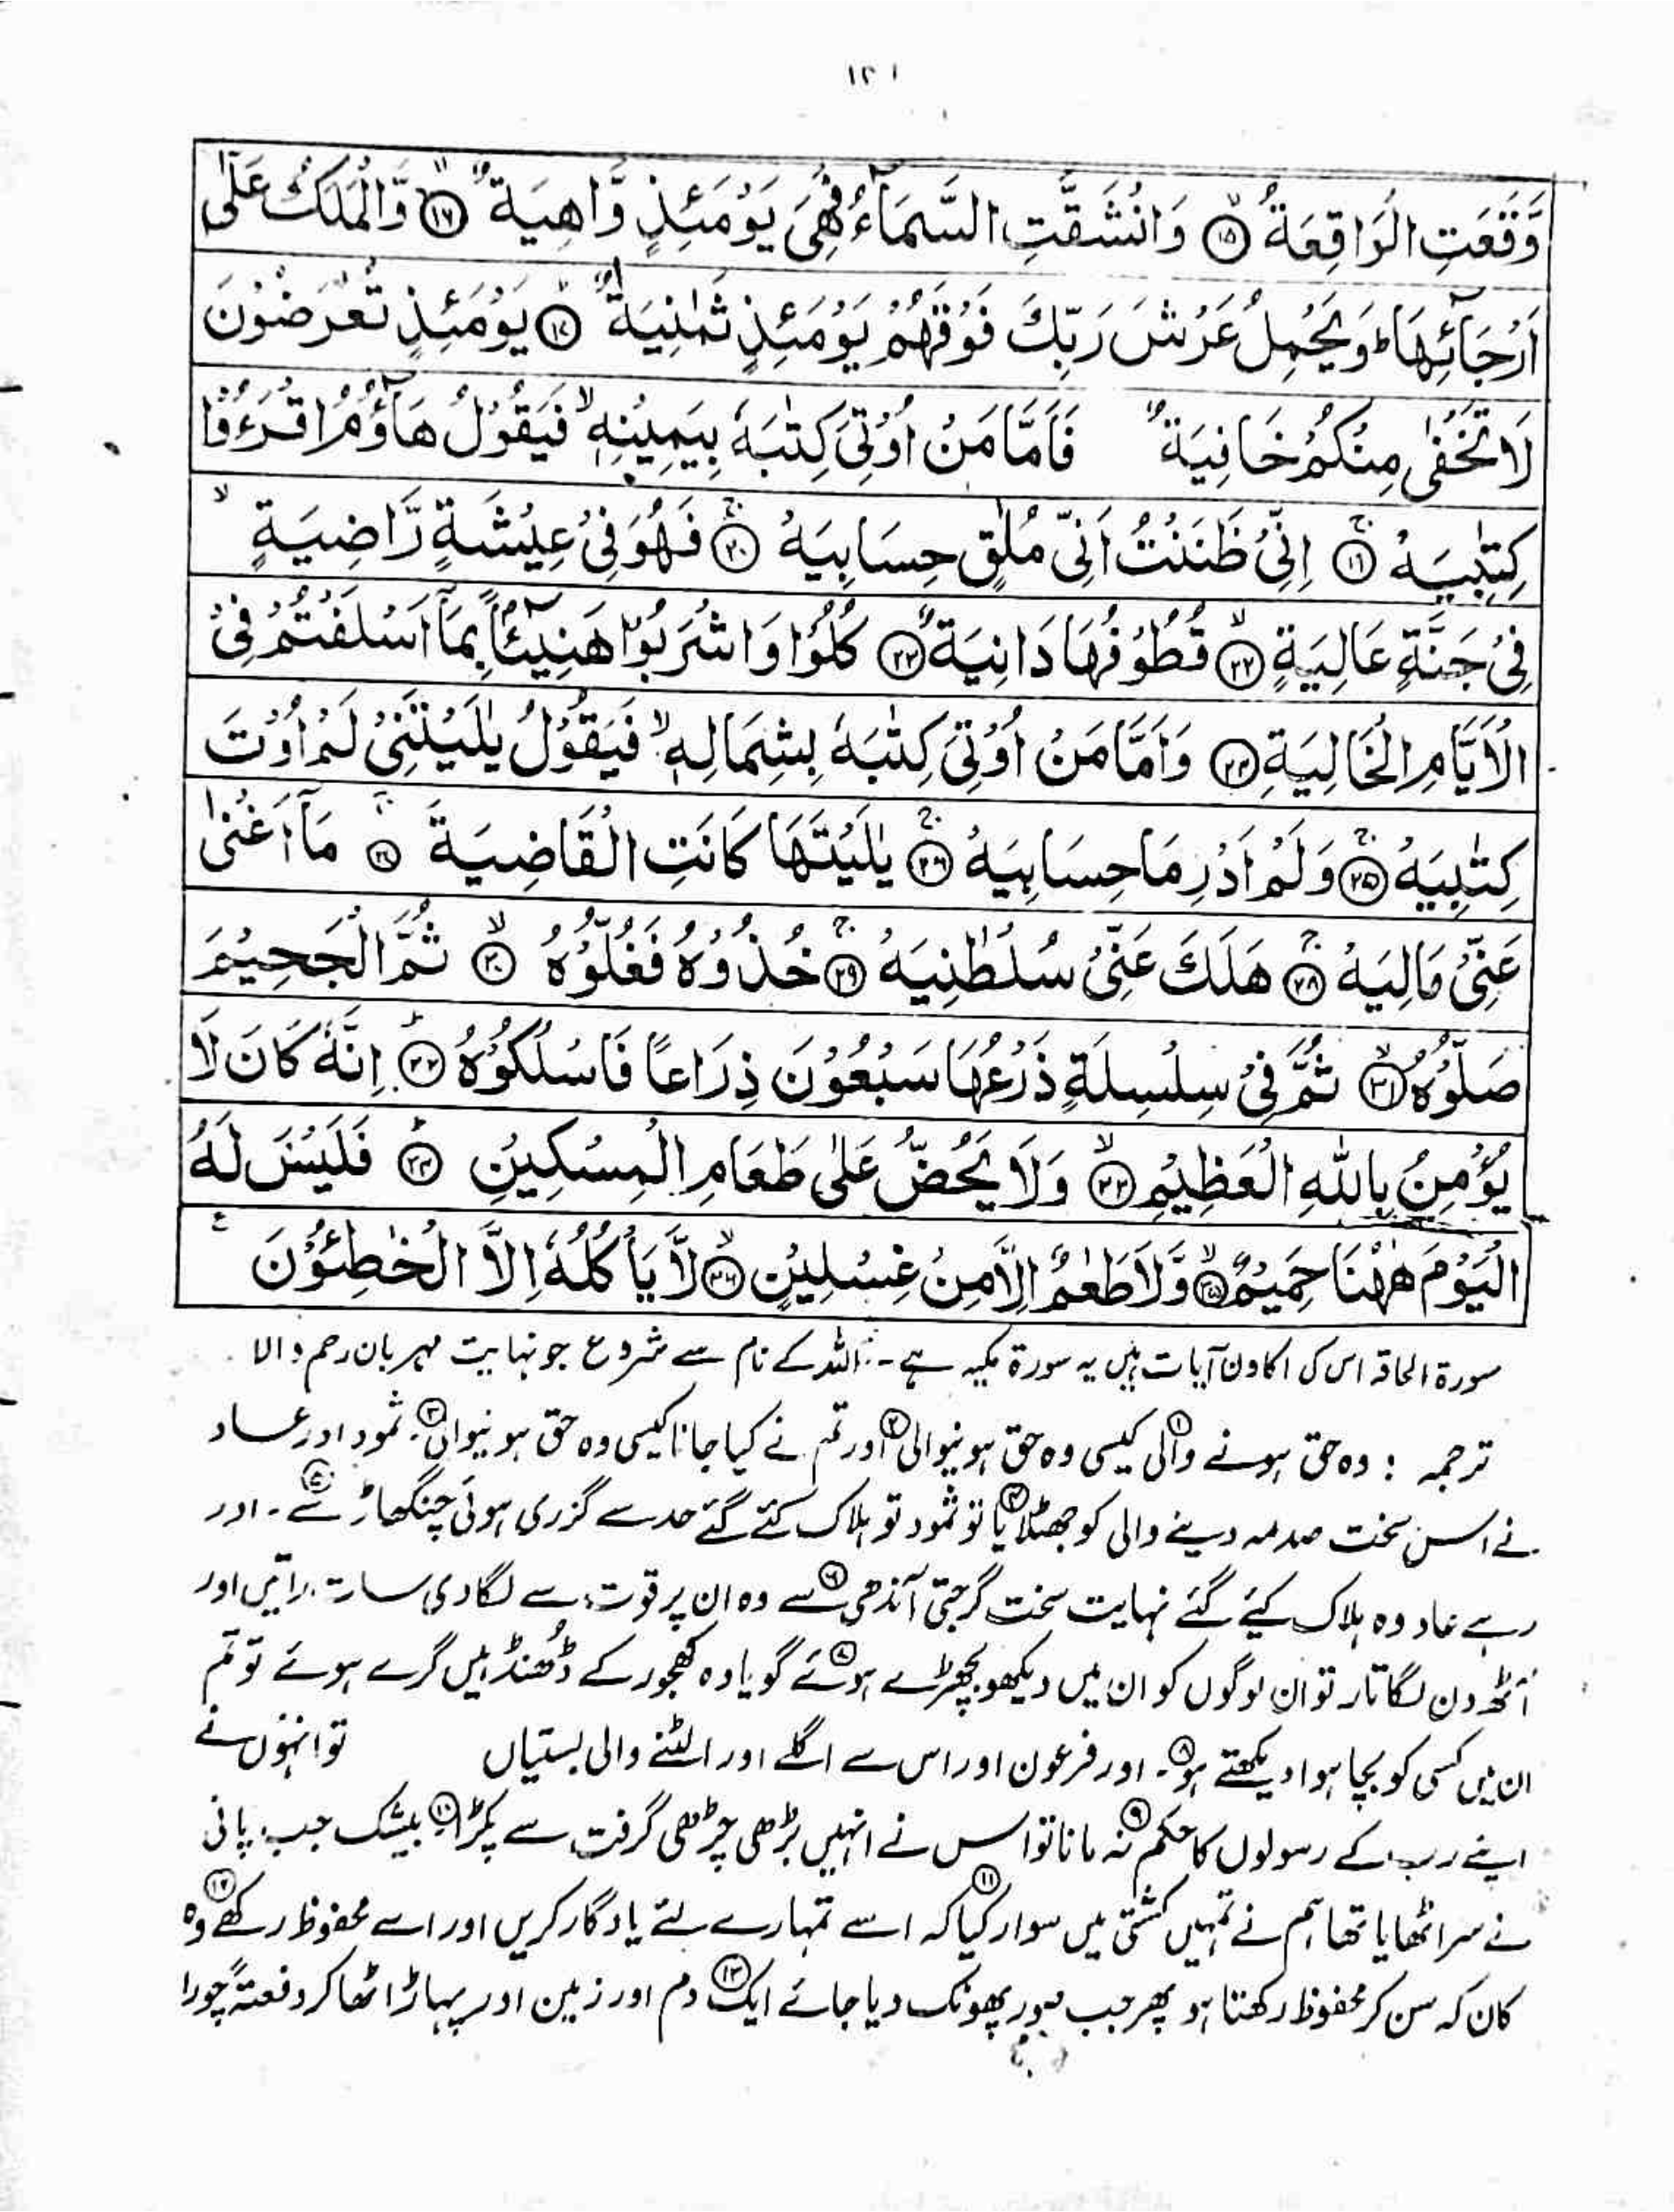 ۱۲۱
وَّقَعَتِ الْوَاقِعَةُ ۙ ۱۵ وَانْشَقَّتِ السَّمَآءُ فَهِىَ يَوْمَئِذٍ وَّاهِيَةٌ ۙ ۱۶ وَّالْمَلَكُ عَلٰٓى
اَرْجَآئِهَا ؕ وَيَحْمِلُ عَرْشَ رَبِّكَ فَوْقَهُمْ يَوْمَئِذٍ ثَمٰنِيَةٌ ؕ ۱۷ يَوْمَئِذٍ تُعْرَضُوْنَ
لَا تَخْفٰى مِنْكُمْ خَافِيَةٌ فَاَمَّا مَنْ اُوْتِىَ كِتٰبَهٗ بِيَمِيْنِهٖ ۙ فَيَقُوْلُ هَآؤُمُ اقْرَءُوْا
كِتٰبِيَهْ ۚ ۱۹ اِنِّىْ ظَنَنْتُ اَنِّىْ مُلٰقٍ حِسَابِيَهْ ۚ ۲۰ فَهُوَ فِىْ عِيْشَةٍ رَّاضِيَةٍ ۙ
فِىْ جَنَّةٍ عَالِيَةٍ ۙ ۲۲ قُطُوْفُهَا دَانِيَةٌ ۲۳ كُلُوْا وَاشْرَبُوْا هَنِيْٓئًا بِمَآ اَسْلَفْتُمْ فِى
الْاَيَّامِ الْخَالِيَةِ ۲۴ وَاَمَّا مَنْ اُوْتِىَ كِتٰبَهٗ بِشِمَالِهٖ ۙ فَيَقُوْلُ يٰلَيْتَنِىْ لَمْ اُوْتَ
كِتٰبِيَهْ ۚ ۲۵ وَلَمْ اَدْرِ مَا حِسَابِيَهْ ۚ ۲۶ يٰلَيْتَهَا كَانَتِ الْقَاضِيَةَ ۚ ۲۷ مَآ اَغْنٰى
عَنِّىْ مَالِيَهْ ۚ ۲۸ هَلَكَ عَنِّىْ سُلْطٰنِيَهْ ۚ ۲۹ خُذُوْهُ فَغُلُّوْهُ ۙ ۳۰ ثُمَّ الْجَحِيْمَ
صَلُّوْهُ ۙ ۳۱ ثُمَّ فِىْ سِلْسِلَةٍ ذَرْعُهَا سَبْعُوْنَ ذِرَاعًا فَاسْلُكُوْهُ ؕ ۳۲ اِنَّهٗ كَانَ لَا
يُؤْمِنُ بِاللّٰهِ الْعَظِيْمِ ۙ ۳۳ وَلَا يَحُضُّ عَلٰى طَعَامِ الْمِسْكِيْنِ ؕ ۳۴ فَلَيْسَ لَهُ
الْيَوْمَ هٰهُنَا حَمِيْمٌ ۙ ۳۵ وَّلَا طَعَامٌ اِلَّا مِنْ غِسْلِيْنٍ ۙ ۳۶ لَّا يَاْكُلُهٗٓ اِلَّا الْخٰطِئُوْنَ ع
سورۃ الحاقہ اس کی اکاون آیات ہیں یہ سورۃ مکیہ ہے ۔ اللہ کے نام سے شروع جو نہایت مہربان رحم والا
ترجمہ : وہ حق ہونے والی ۱ کیسی وہ حق ہونیوالی ۲ اور تم نے کیا جانا کیسی وہ حق ہونیوالی ۳ ۔ ثمود اور عاد
نے اس سخت صدمہ دینے والی کو جھٹلایا ۴ تو ثمود تو ہلاک کئے گئے حد سے گزری ہوئی چنگھاڑ سے ۵ ۔ اور
رہے عاد وہ ہلاک کیئے گئے نہایت سخت گرجتی آندھی سے ۶ وہ ان پر قوت سے لگادی سات راتیں اور
آٹھ دن لگاتار تو ان لوگوں کو ان میں دیکھو بچھڑے ہوئے ۷ گویا وہ کھجور کے ڈھنڈ ہیں گرے ہوئے تو تم
ان میں کسی کو بچا ہوا دیکھتے ہو ۸ ۔ اور فرعون اور اس سے اگلے اور الٹنے والی بستیاں تو انہوں نے
اپنے رب کے رسولوں کا حکم نہ مانا ۹ تو اس نے انہیں بڑھی چڑھی گرفت سے پکڑا ۱۰ بیشک جب پانی
نے سر اٹھایا تھا ہم نے تمہیں کشتی میں سوار کیا ۱۱ کہ اسے تمہارے لئے یادگار کریں اور اسے محفوظ رکھے ۱۲ وہ
کان کہ سن کر محفوظ رکھتا ہو پھر جب صور پھونک دیا جائے ایک دم ۱۳ اور زمین اور پہاڑ اٹھا کر دفعتہً چورا